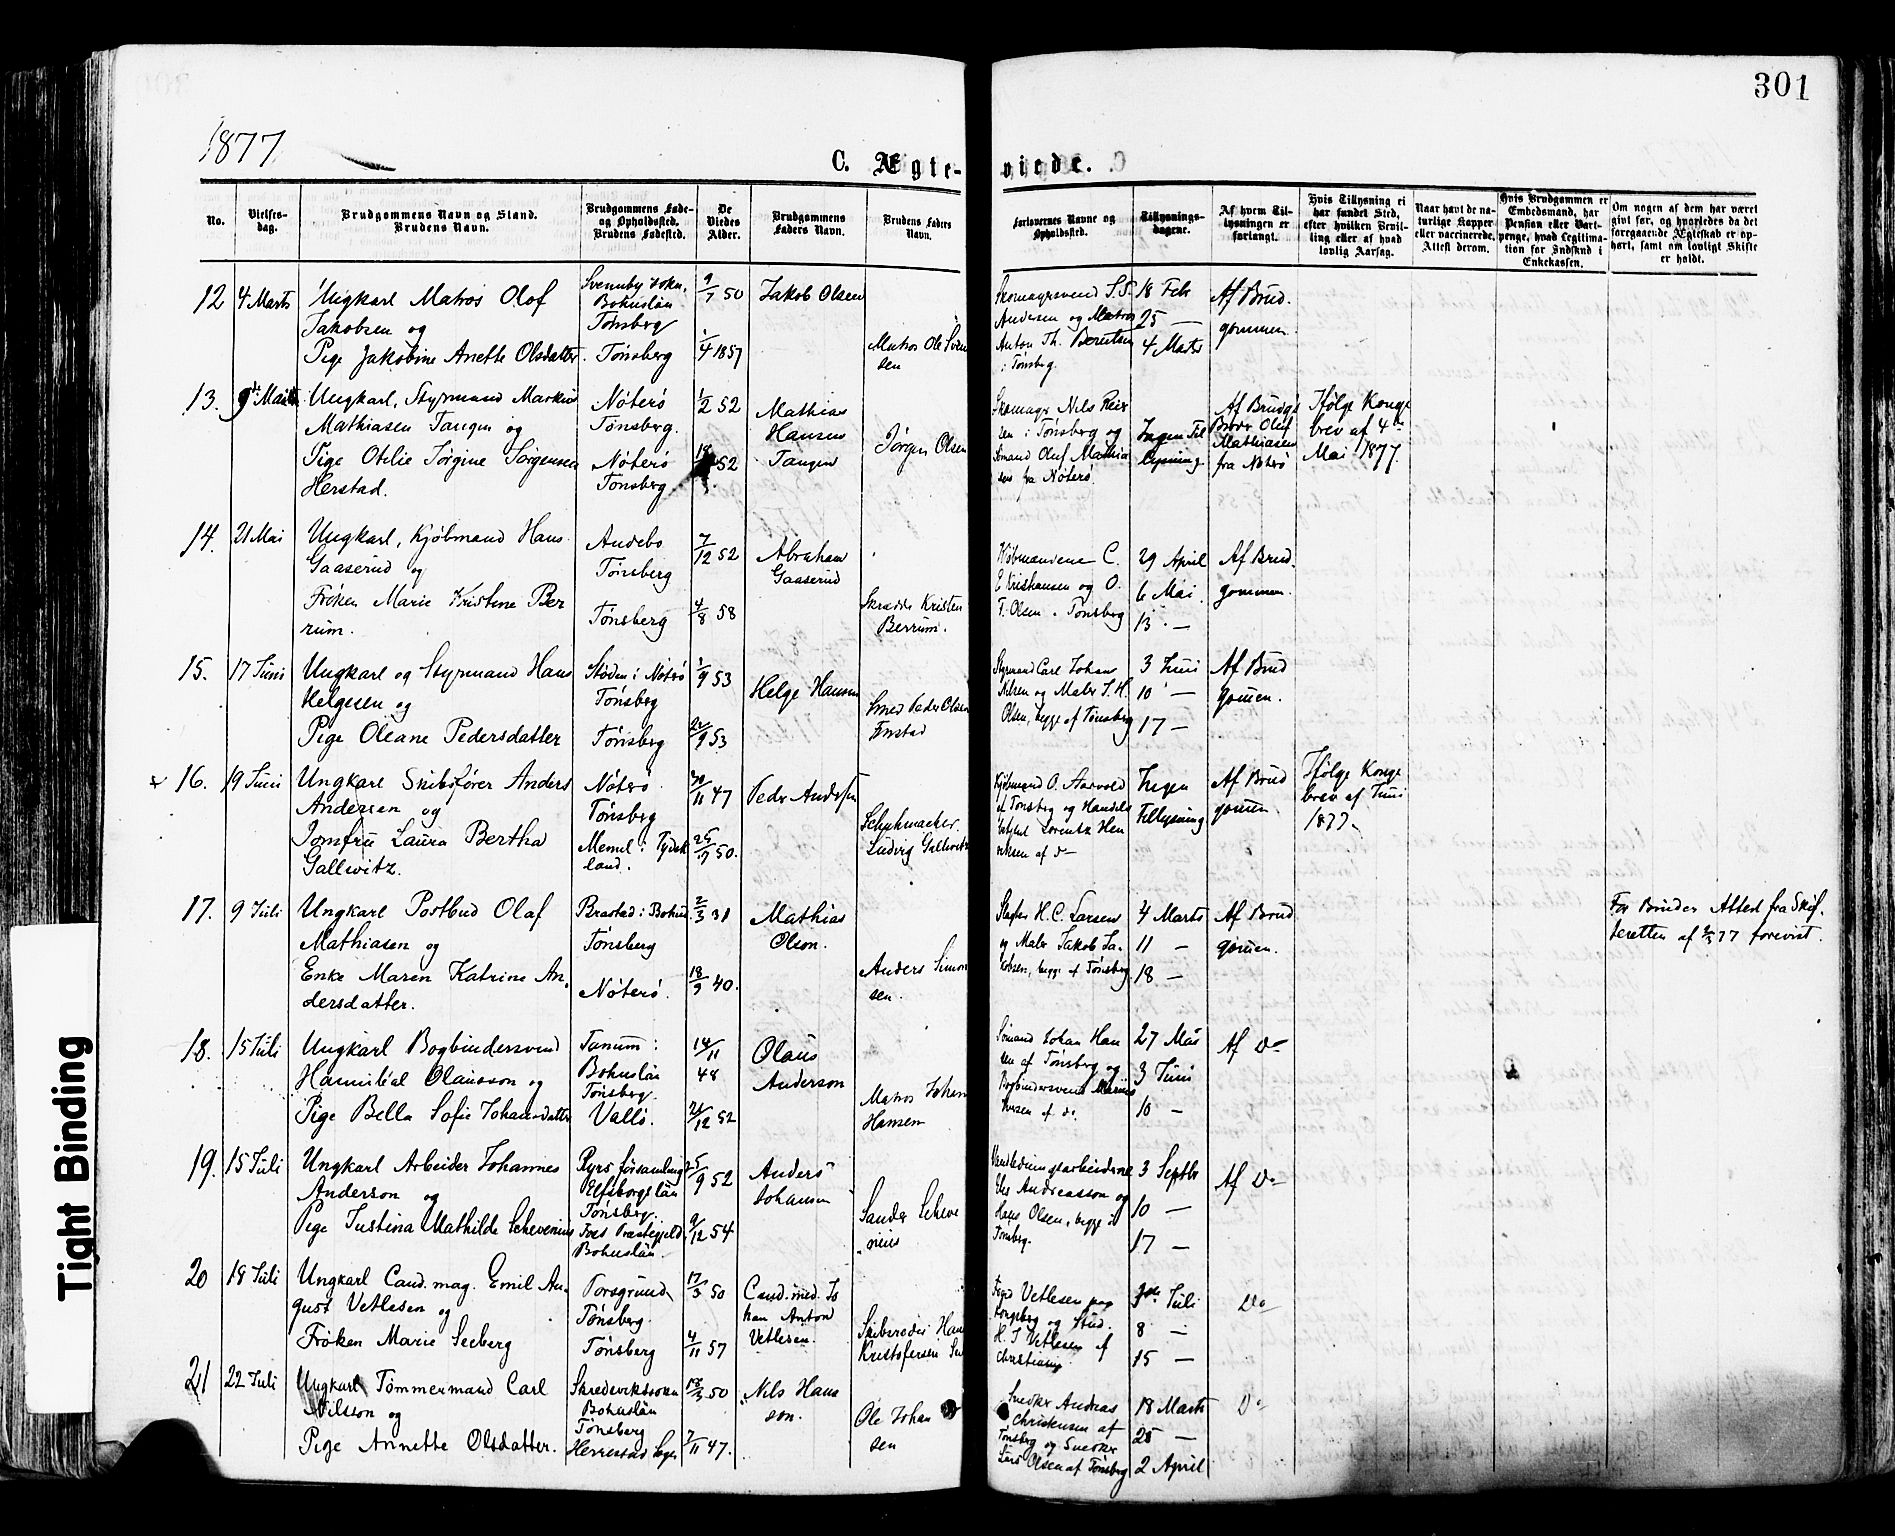 301
1877
C. Ægte-
viede.
No.
Vielses-
dag.
Brudgommens Navn og Stand.
Brudens Navn.
Brudgommens Føde-
og Opholdssted.
Brudens Fødested.
De
Viedes
Alder.
Brudgommens
Faders Navn.
Brudens Faders
Navn.
Forlovernes Navne og
Opholdssted.
Tillysnings-
dagene.
Af hvem Til-
lysningen er
forlangt.
Hvis Tillysning ei
har fundet Sted,
efter hvilken Bevil-
ling eller af hvad
lovlig Aarsag.
Naar havt de na-
turlige Kopper
eller vaccinerede.
Attest derom.
Hvis Brudgommen er
Embedsmand, har
Pension eller Vart-
penge, hvad Legitima-
tion for Indskud i
Enkekassen.
Om nogen af dem har været
gift før, og hvorledes da det
foregaaende Ægteskab er op-
hørt, samt om lovligt Skifte
er holdt.
12 4 Marts
Ungkarl Matros Olof
Jakobsen og
Pige Jakobine Anette Olsdatter.
Bohuslän
Tønsberg
Tønsberg
9/7 50
1/4 1857
Jakob Olsen
Matros Ole Sven
sen
Skomagersvend S. S.
Andersen og Matros
Anton Th. Berntsen
i Tønsberg.
18 Feb
25 —
4 Marts
Af Brud.
gommen.
13.
Ungkarl, Styrmand Markus
Mathiasen Tangen og
Pige Otilie Jørgine Jørgensen
Herstad.
Nøterø
Tønsberg.
Nøterø
Tønsberg
1/2 52
52
Mathias
Hansen
Tangen
Jørgen Olsen
Skomager Nils Reier
sen i Tønsberg og
Sømand Oluf Mathia
sen fra Nøterø.
Ingen Til
lysning
Af Brudg
Broder Oluf
Mathiasen
fra Nøterø
Ifølge Konge
brev af 4de
Mai 1877.
14. 21 Mai
Ungkarl, Kjøbmand Hans
Gaaserud og
Frøken Marie Kristine Ber
rum.
Andebo
Tønsberg
Tønsberg
7/12 52
4/8 58
Abraham
Gaaserud
Skrædder Kristen
Berrum.
Kjøbmændene C.
E Kristiansen og O.
T. Olsen . Tønsberg
29 April
6 Mai
13 —
Af Brud.
gommen.
15. 17 Juni
Ungkarl og Styrmand Hans
Helgesen og
Pige Oleane Pedersdatter
Støden i Nøterø
Tønsberg
Tønsberg
1/9 53
22/9 53
Helge Hansen
Smed Peder Olsen
Styrmand Carl Johan
Nilsen og Maler J. H.
Olsen, begge af Tønsberg
3 Juni
10 —
17 —
Af Brud
gomen.
16. 19 Juni
Ungkarl Skibsfører Anders
Andersen og
Jomfru Laura Bertha
Gallwitz.
Nøterø
Tønsberg
Memel i Tydsk
land.
30/11 47
25/9 50.
Peder Andersen
Schuhmacher
Ludvig Gallwitz
Kjøbmand O. Aarvold
af Tønsberg og Handels
Lorentz Hen
riksen af do
Ingen
Tillysning
Af Brud
gomen.
Ifølge Konge
brev af Juni
1877.
17. 9 Juli
Ungkarl Postbud Olaf
Mathiasen og
Enke Maren Katrine An-
dersdatter.
Brastad i Bohus.
Tønsberg
Nøterø.
2/3 31
18/9 40.
Mathias
Olson.
Anders Simon
sen.
Slagter H. C. Larsen
og Maler Jakob Ja-
kobsen, begge af Tønsberg
4 Marts
11 —
18 —
Af Brud
gomen.
For Bruden Attest fra Skif-
teretten af 77 forevist.
18. 15 Juli
Ungkarl Bogbindersvend
Hannibal Olausson og
Pige Bella Sofie Johansdatter
Tanum i
Bohuslän
Tønsberg.
Vallø.
14/11
48
21/12 52
Olaus
Anderson
Matros Johan
Hansen
Sømand Johan Han
sen af Tønsberg og
Bogbindersvend Marius
Iversen af do.
27 Mai
3 Juni
10 —
Af Do
19. 15 Juli
Ungkarl Arbeider Johannes
Anderson og
Pige Justina Mathilde Schevenius
Ryrs församling
Elfsborgslän
Tønsberg.
Foss Præstegjeld
Bohuslän.
25/9 52
9/12 54
Anders
Johansen
Sander Scheve
nius
Vandledningsarbeiderne
Andreasson og
Hans Olsen, begge i
Tønsberg.
3 Septbr
10 —
17 —
Af Do
20 18 Juli
Ungkarl Cand. mag. Emil Au-
gust Vetlesen og
Frøken Marie Seeberg
Porsgrund
Tønsberg.
Tønsberg
17/3 50
4/11 57
Cand. med. Jo
han Anton
Vetlesen.
Skibsreder Hans
Kristofersen See
Foged Vetlesen paa
Kongsberg og Stud.
H. J Vetlesen af
Christiania.
Juli
8 —
15 —
Do
21 22 Juli
Ungkarl Tømmermand Carl
Nilsson og
Pige Annette Olsdatter.
Skredsvikssocken
Bohuslän
Tønsberg
Herrestad Sogn
13/3 50
7/11 47.
Nils Hans
son.
Ole Johan
sen
Snedker Andreas
Christensen af
Tønsberg og Snedker
Lars Olsen af Tønsberg
18 Marts
25 —
2 April
Do
Tight Binding